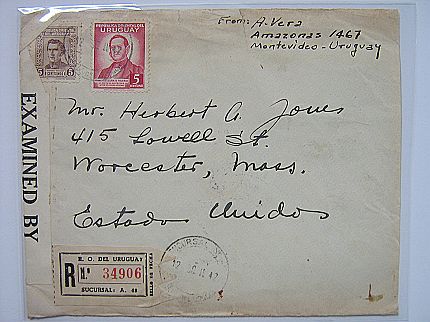 REPUBLICA ORIENTAL DEL
URUGUAY
5
From: A. Vera
Amazonas 1467
Montevideo - Uruguay
5 5
EXAMINED BY
Mr. Herbert A. Jones
415 Lowell St.
Worcester, Mass.
Estado Unidos
SUCURSAL
R. O. DEL URUGUAY
R No. 34906
SUCURSAL: A. 48
SELLO DE FECHA